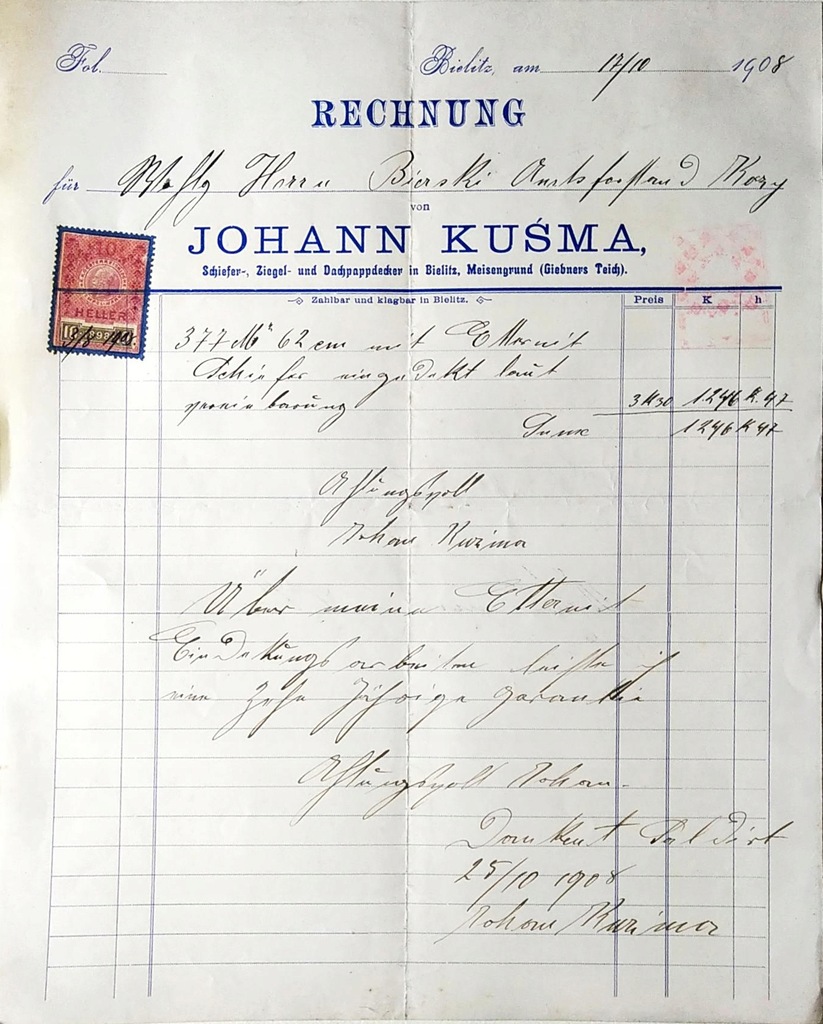 Fol.
Bielitz, am 17/10 1908
RECHNUNG
für Herrn Bierski Amtsforstand Kozy
von
JOHANN KUŚMA,
Schiefer-, Ziegel- und Dachpappdecker in Bielitz, Meisengrund (Giebners Teich).
Zahlbar und klagbar in Bielitz. Preis K h
HELLER
377 M² 62 cm mit Etternit
Schiefer eingedekt laut
vereinbarung 3K30 1246 K 47
Sume 1246 K 47
Achtungsvoll
Johan Kuzma
Über meine Etternit
Eindekungsarbeiten leiste ich
eine Zehn Jährige garantie
Achtungsvoll Johan
Dankent Saldirt
25/10 1908
Johan Kuzma